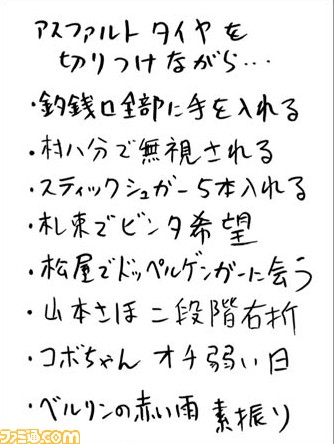 アスファルト タイヤを
切りつけながら…
・釣銭口全部に手を入れる
・村八分で無視される
・スティックシュガー5本入れる
・札束でビンタ希望
・松屋でドッペルゲンガーに会う
・山本さほ 二段階右折
・コボちゃん オチ弱い日
・ベルリンの赤い雨 素振り
ファミ通.com